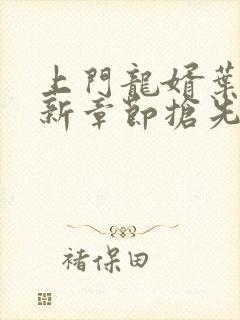 上門龍婿葉
新章節搶先
褚保田